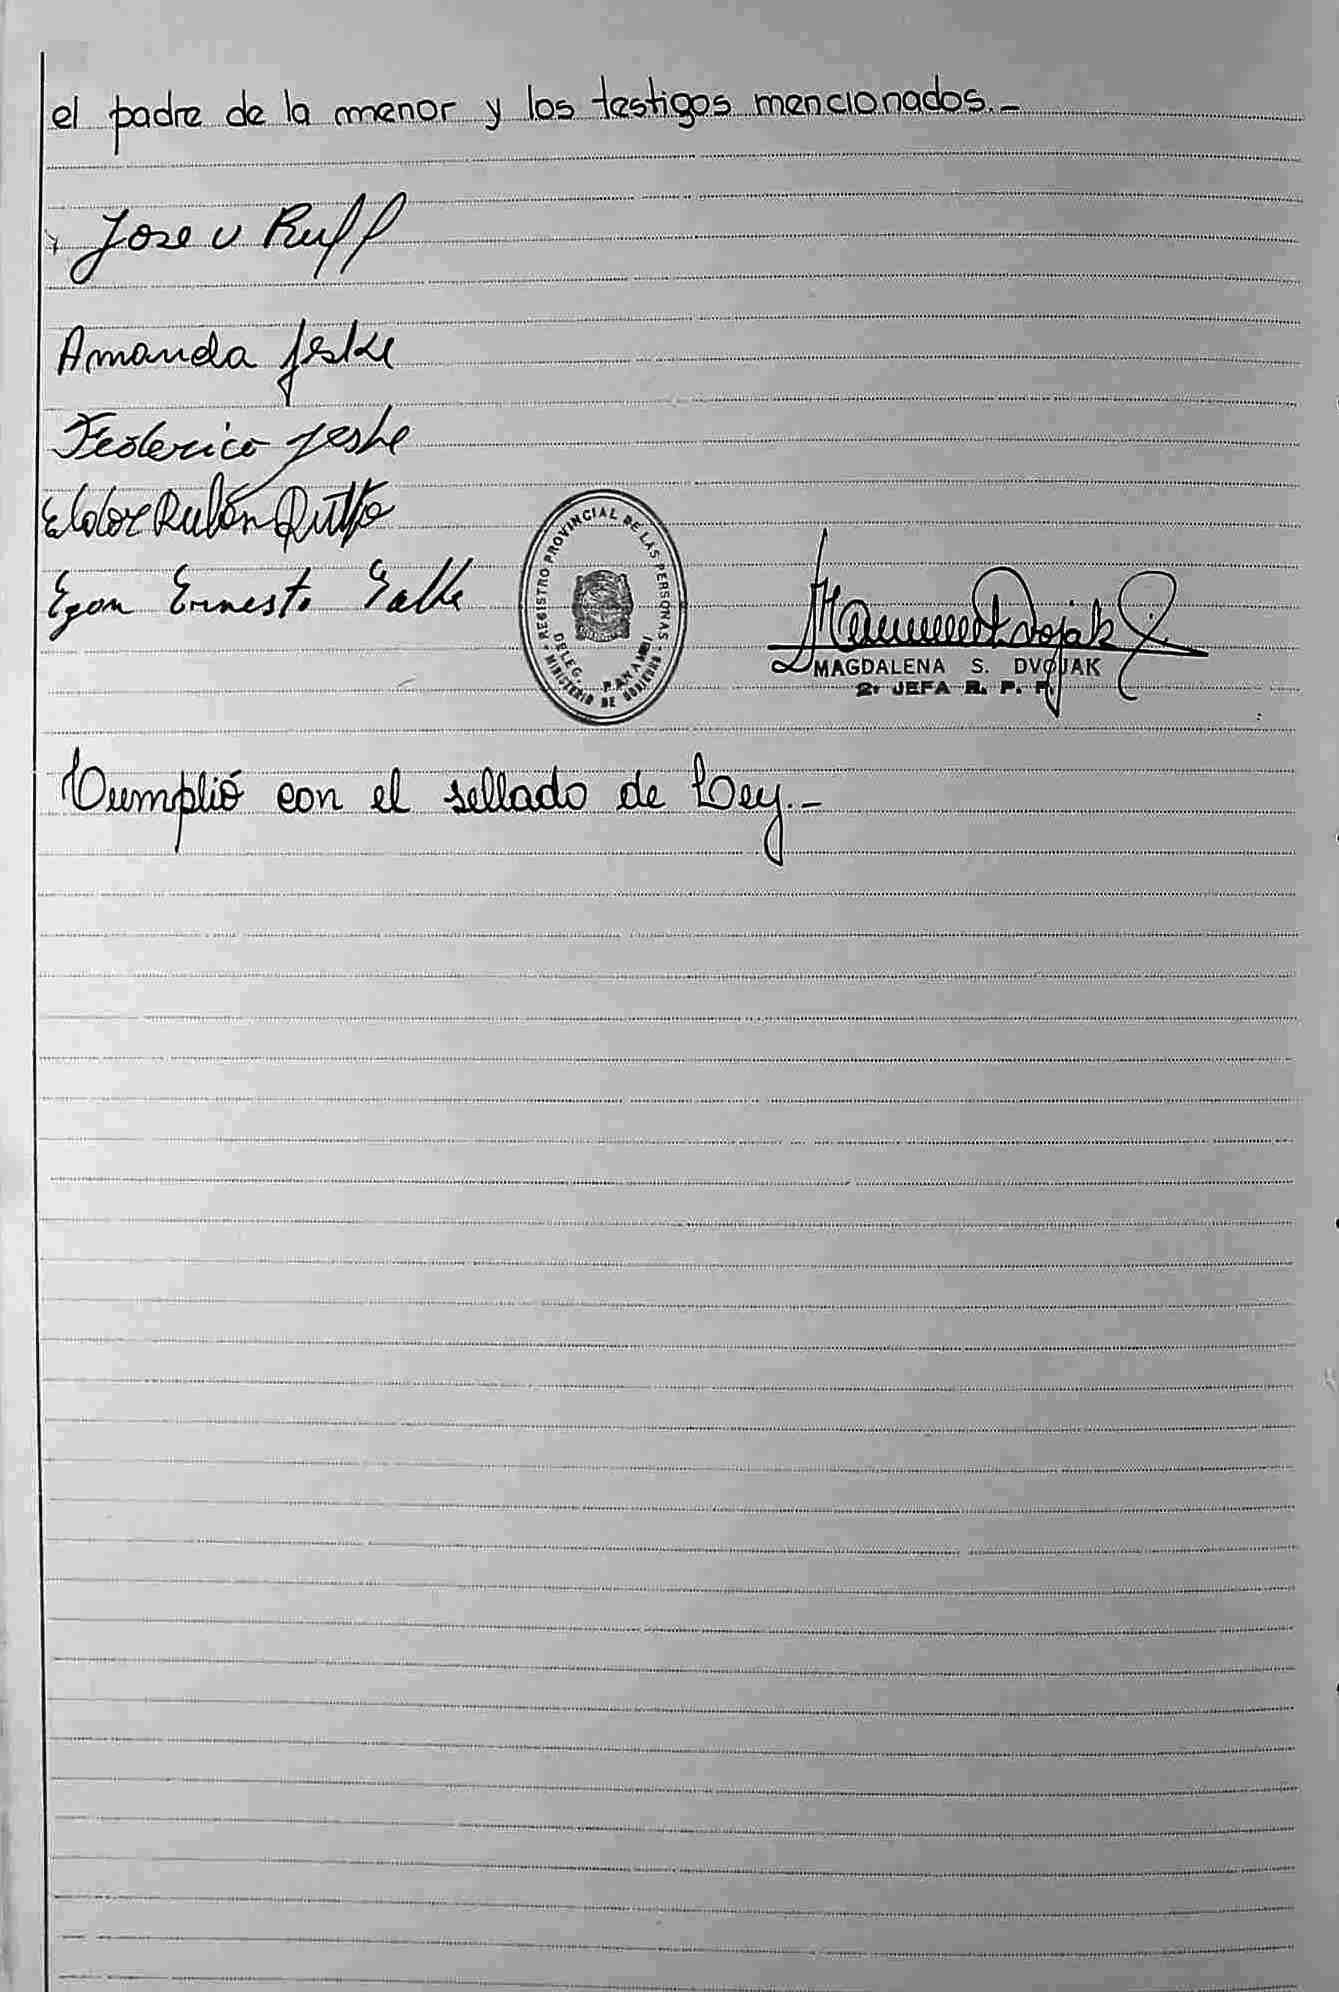 el padre de la menor y los testigos mencionados.-
Jose v Ruff
Amanda Jeske
Federico Jeske
Rubén
Egon Ernesto
REGISTRO PROVINCIAL DE LAS PERSONAS
DELEG. PANAMBI
MINISTERIO DE GOBIERNO
MAGDALENA S. DVOJAK
2ª JEFA R. P. P.
Cumplió con el sellado de Ley.-